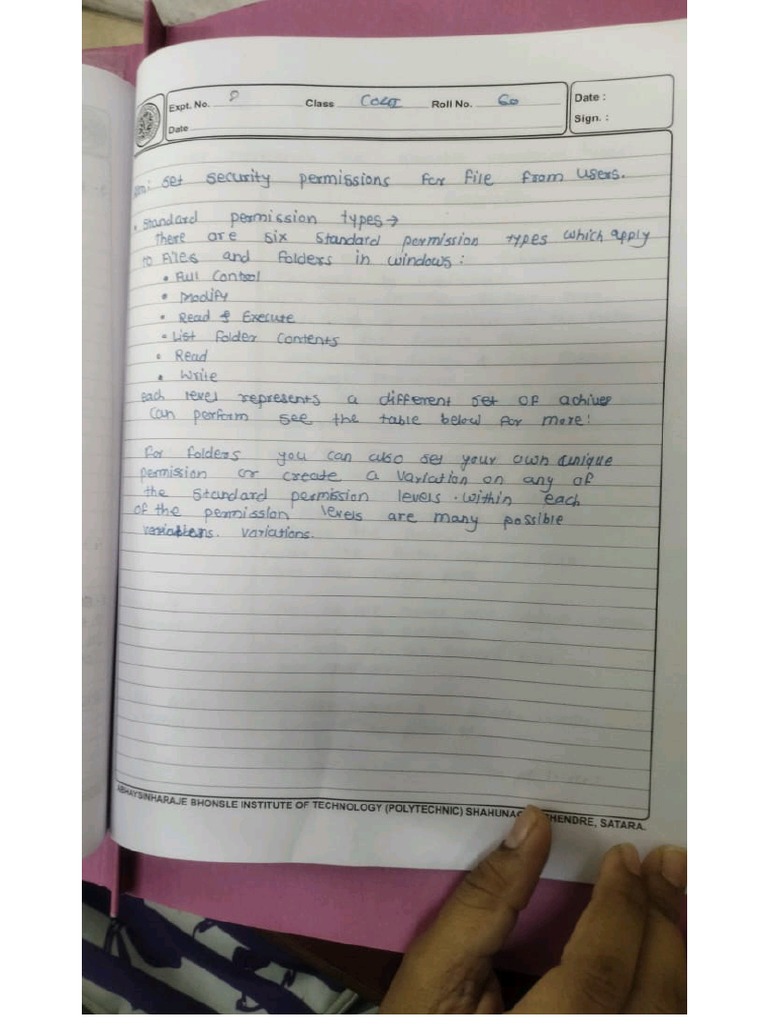 Expt. No. 8 Class CO6I Roll No. 60 Date :
Date Sign. :
set security permissions for file from users.
• Standard permission types →
there are six standard permission types which apply
to Files and folders in windows :
• Full Control
• Modify
• Read & Execute
• List folder contents
• Read
• Write
each level represents a different set of
Can perform see the table below for more:
for folders you can also set your own unique
permission or create a variation on any of
the standard permission levels. within each
of the permission levels are many possible
variations.
ABHAYSINHARAJE BHONSLE INSTITUTE OF TECHNOLOGY (POLYTECHNIC) SATARA.